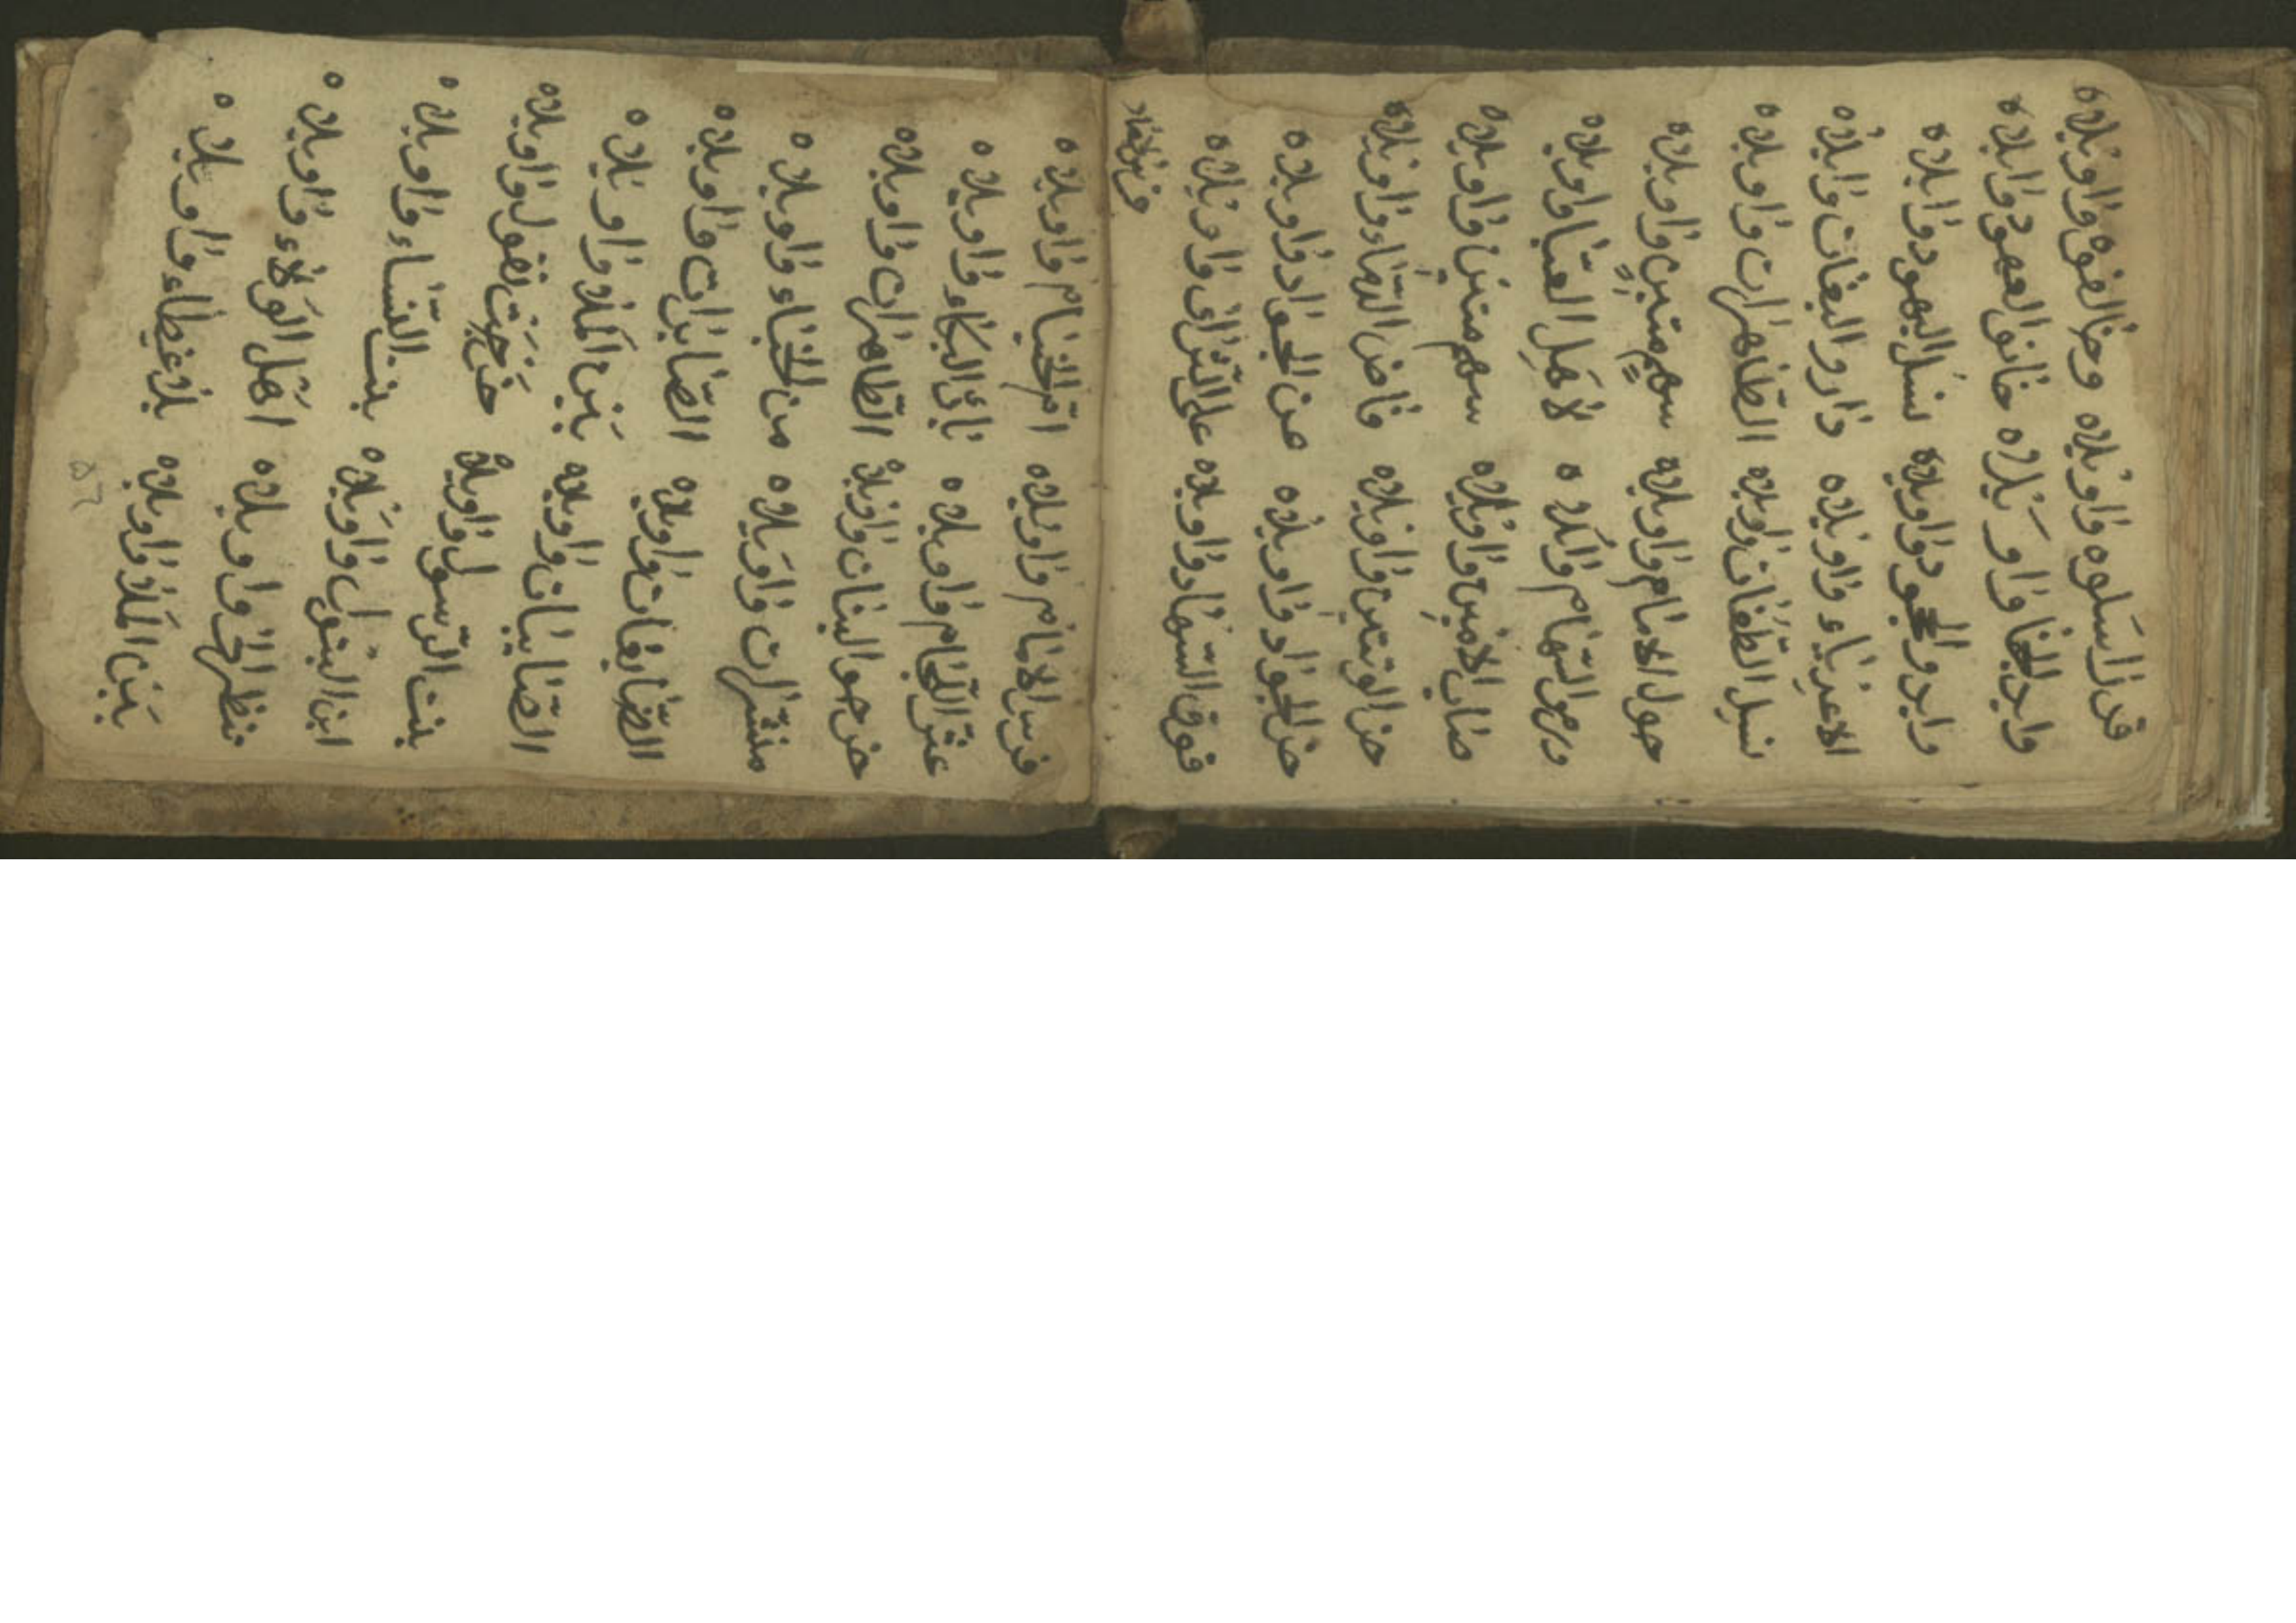 واويلاه واويلاه
وابد الخفا واويلاه خانو العهود واويلاه
وابدو الجحود واويلاه نسل اليهود واويلاه
واويلاه دارو البغات واويلاه
نسل الطغات واويلاه الطاهرات واويلاه
حول الامام واويلاه سهم متين واويلاه
ورموالسهام واويلاه لاهل العبا واويلاه
صاب الامين واويلاه سهم متين واويلاه
حز الوتين واويلاه فاض الدماء واويلاه
خر الجواد واويلاه عن الجواد واويلاه
فوق السهاد واويلاه على الثرى واويلاه
فرس الامام واويلاه امّ الخيام واويلاه
عثر اللجام واويلاه البكاء واويلاه
خرجو البنات واويلاه الطاهرات واويلاه
منشرات واويلاه من الخباء واويلاه
الضايعات واويلاه الصابرات واويلاه
الصايبات واويلاه بين الملا واويلاه
بنت الرسول واويلاه خرجت تقول واويلاه
ابن البتول واويلاه بنت النساء واويلاه
تنظر الى واويلاه اهل الولاء واويلاه
بين الملا واويلاه بلا غطاء واويلاه